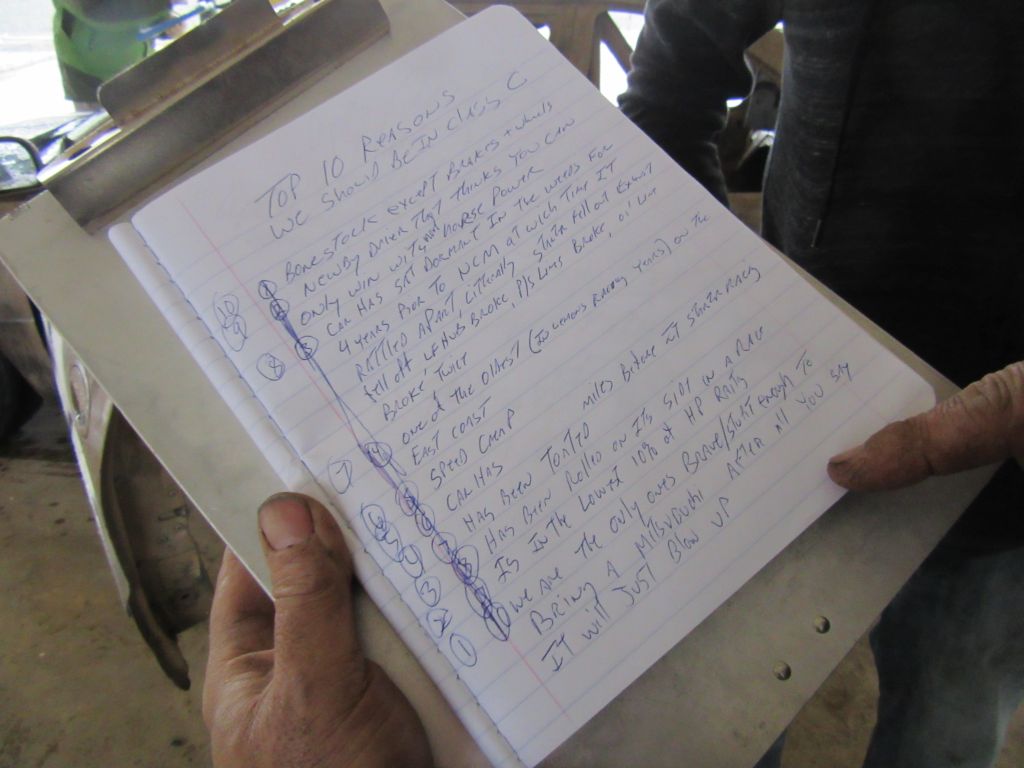 TOP 10 REASONS
WE SHOULD BE IN CLASS C
BONE STOCK EXCEPT BRAKES + wheels
NEWBY DRIVER THAT THINKS YOU CAN
ONLY WIN WITH HORSE POWER
CAR HAS SAT DORMANT IN THE WEEDS FOR
4 YEARS PRIOR TO NCM AT WICH TIME IT
RATTLED APART LITTERALLY fell out EXHAUST
fell off, LF HUB BROKE, P/S LINES BROKE, oil line
BROKE TWICE
ONE of THE OLDEST (IN LEMONS RACING YEARS) ON THE
EAST COAST
SPEED CHEAP
CAR HAS
HAS BEEN TOWED MILES BEFORE IT STARTED RACING
HAS BEEN Rolled ON ITS SIDE IN A RACE
IS IN THE LOWEST 10% of HP RATIO
WE ARE THE ONLY ONES BRAVE/STUPID ENOUGH TO
BRING A MITSUBUSHI AFTER All YOU SAY
IT will JUST Blow UP
10
9
8
7
3
2
1